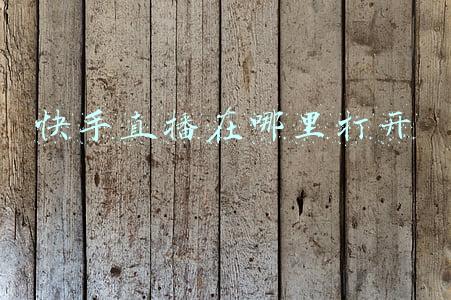 快手直播在哪里打开